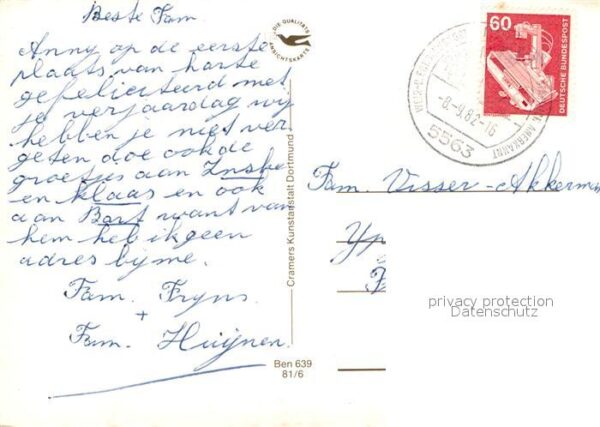 Beste Fam
Anny op de eerste
plaats van harte
gefeliciteerd met
je verjaardag wij
hebben je niet ver
geten doe ook de
groetjes aan Inske
en klaas en ook
aan Bart want van
hem heb ik geen
adres bij me.
Fam. Fryns.
+
Fam. Huijnen.
DIE QUALITÄTS
ANSICHTSKARTE
Cramers Kunstanstalt Dortmund
Ben 639
81/6
60
DEUTSCHE BUNDESPOST
-8.-9.82-16
5563
Fam. Visser-Akkerm
Yp
privacy protection
Datenschutz